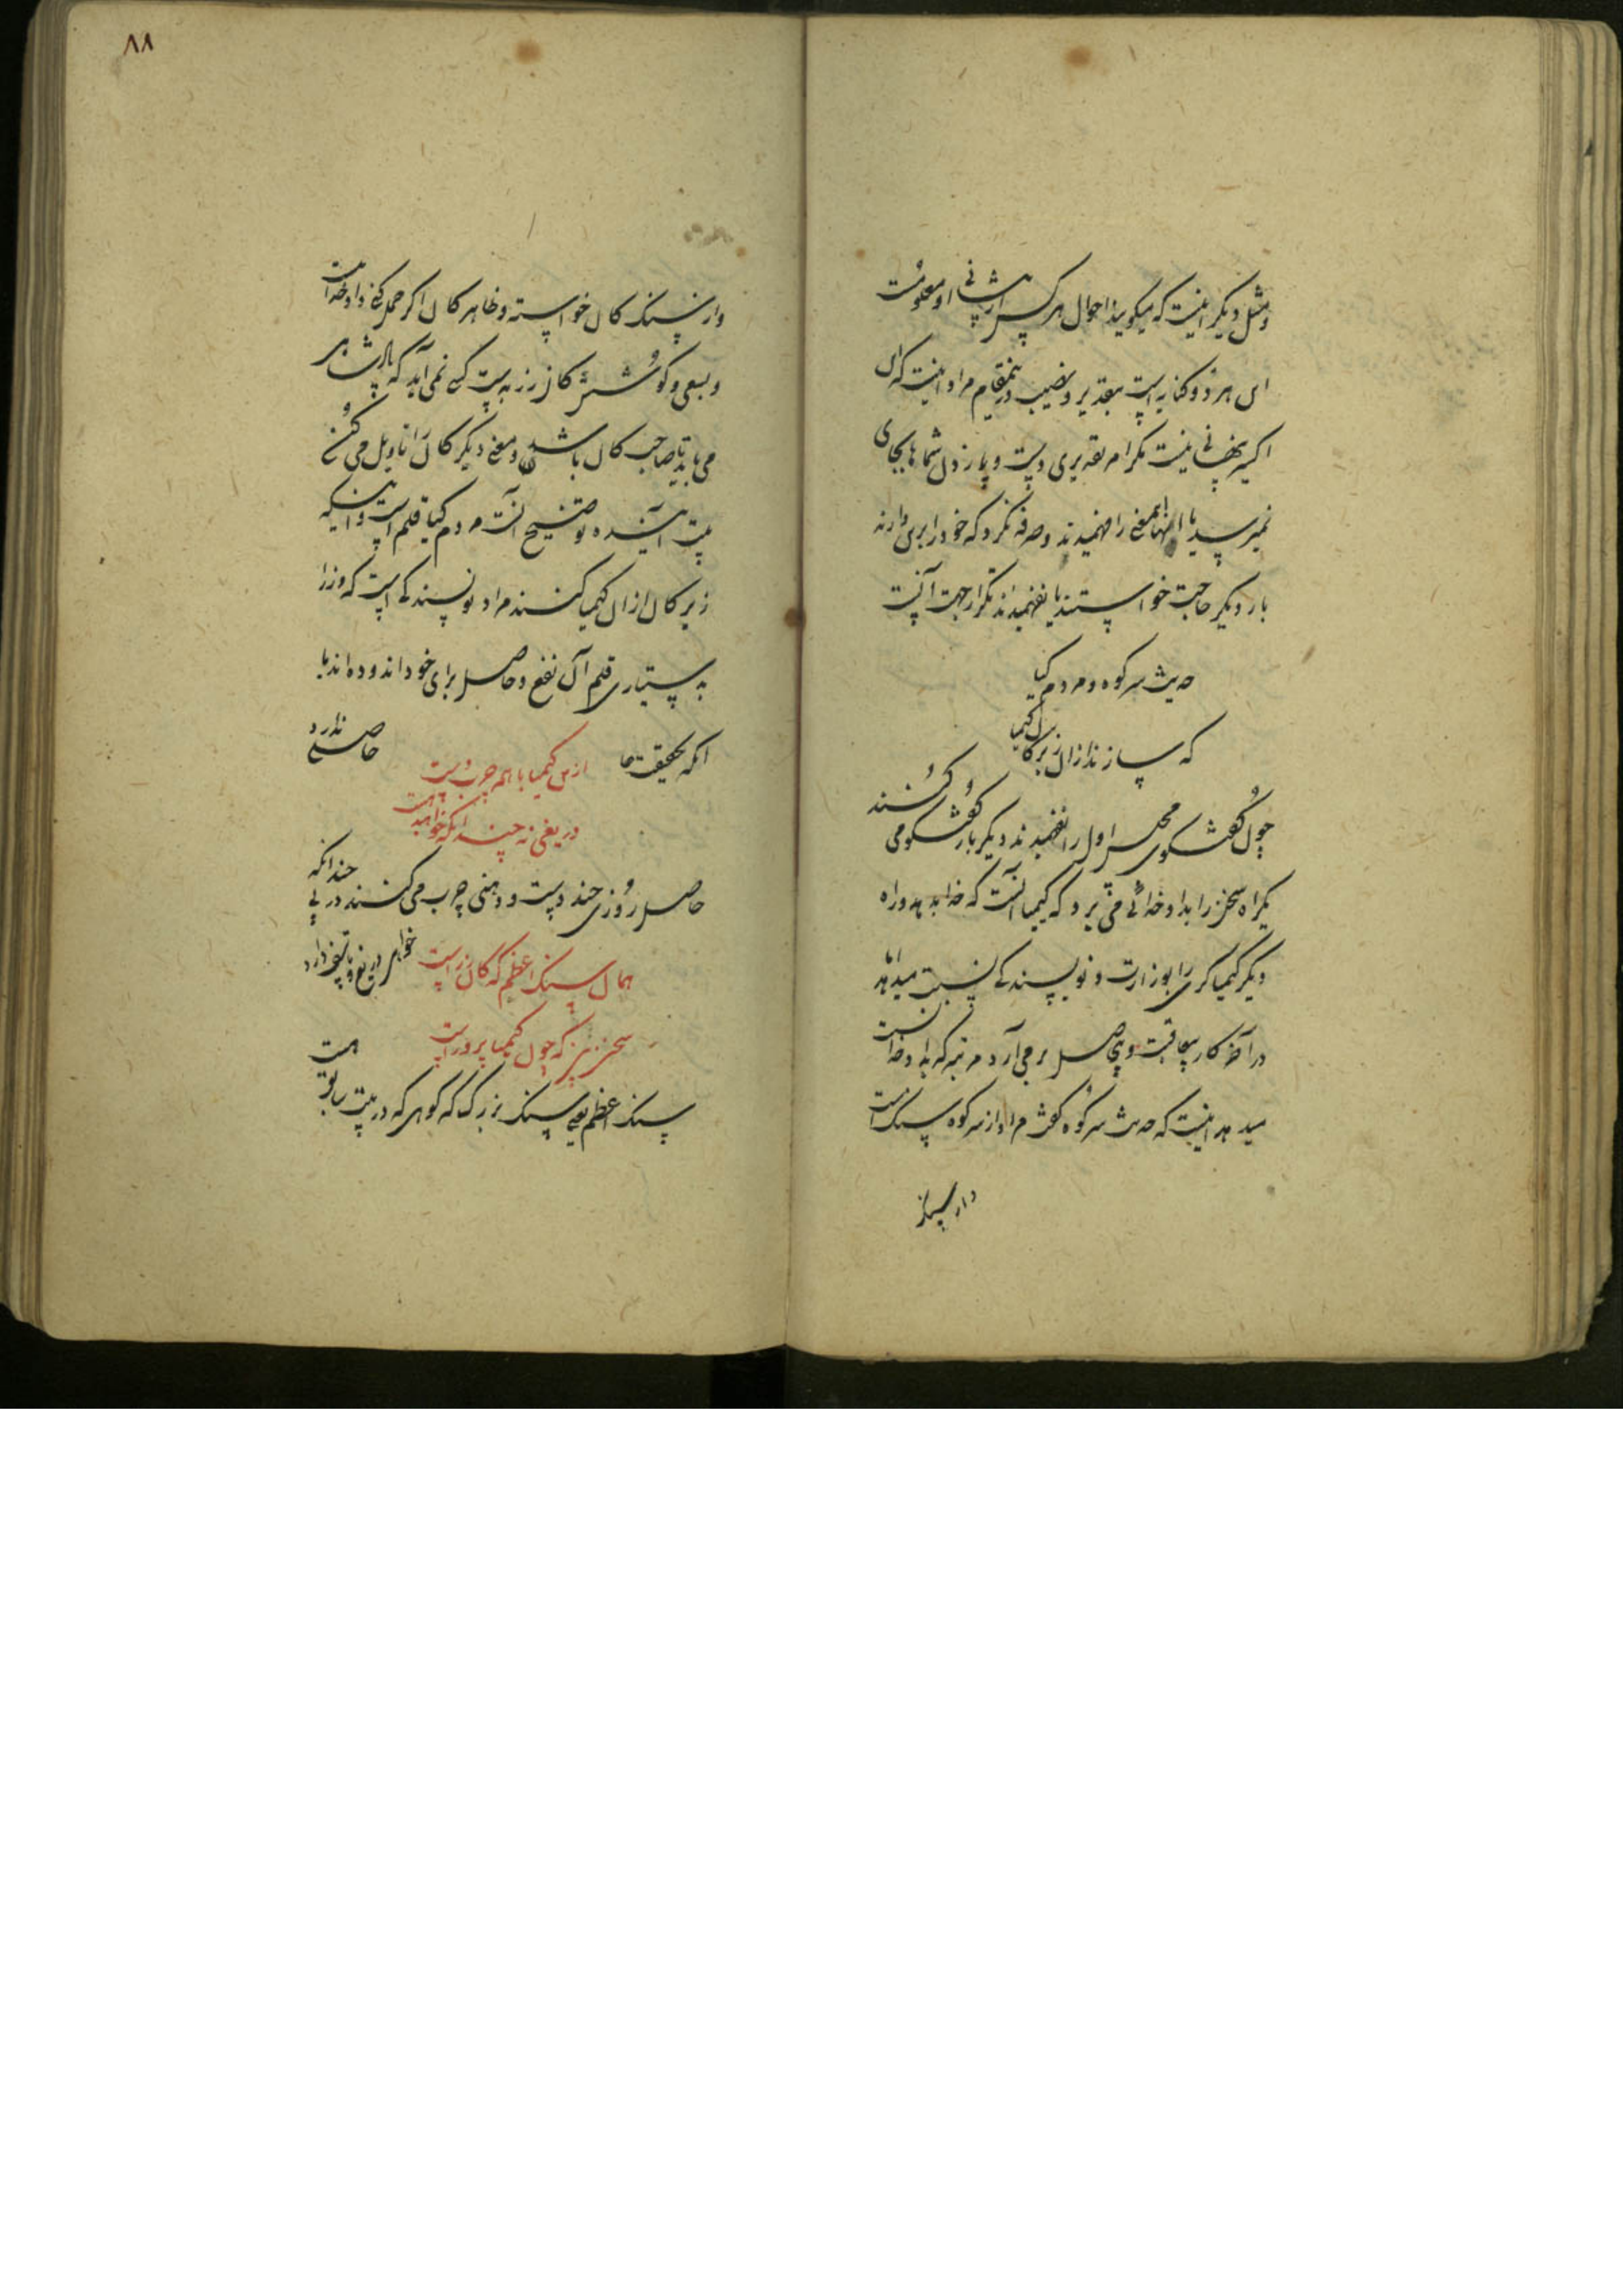 ومثل دیگر اینست که میگویند احوال هر کس از پیشانی او معلومست
این هر دو کنایه است بتقدیر و نصیب درینمقام مراد اینست که آن
اکسیر نهانی نیست مگر امر تقدیری دست و پا زدن شماها بجای
نمیرسد یا اینها اینمعنی را فهمیدند وصرفه نکرد که خود را بری دارند
بار دیگر حاجت خواستند یا نفهمیدند تکرار جهت آنست
حدیث سر کوه و مردم کیا
که سازند ازان زیرکان کیمیا
چون گفتگوی مجلس اول را نفهمیدند دیگر بار گفتگو می کنند
یکراه سخن را بداد خدائی می برد که کیمیا آنست که خدا بدهد و راه
دیگر کیمیاگری را بوزارت و نویسندگی نسبت میدهد
در آخر کار بیعاقبت و بیحاصل بر می آرد مرتبه که بداد خدا نسبت
میدهد اینست که حدیث سر کوه گفت مراد از سر کوه سنگ است
وار سنگ
وار سنگ کان خواسته و ظاهر کان اگر حمل کنی داد خداست
و بسعی و کوشش کان زر بدست کسی نمی آید که پادشاهی
می باید تا صاحب کان باشد و معنی دیگر کان را تاویل می کنی
بیت آینده توضیح آنست مردم کیا قلم است و اینکه
زیرکان ازان کیمیا کنند مراد نویسندگی است که وزرا
بدستیاری قلم آن نفع و حاصل برای خود اندوده اند با
انکه بحقیقت ما حاصلی ندارد
ازین کیمیا با همه چرب دست
دریغی نه چندانکه خواهند هست
حاصل روزی چند دست و دهنی چرب می کنند در پی چندانکه
خواهی دریغ و تاسف دارد
همان سنگ اعظم که کان زرست
سخن بین که چون کیمیا پرورست
سنگ اعظم یعنی سنگ بزرگ که کوهی که در بیت سابق است
۸۸